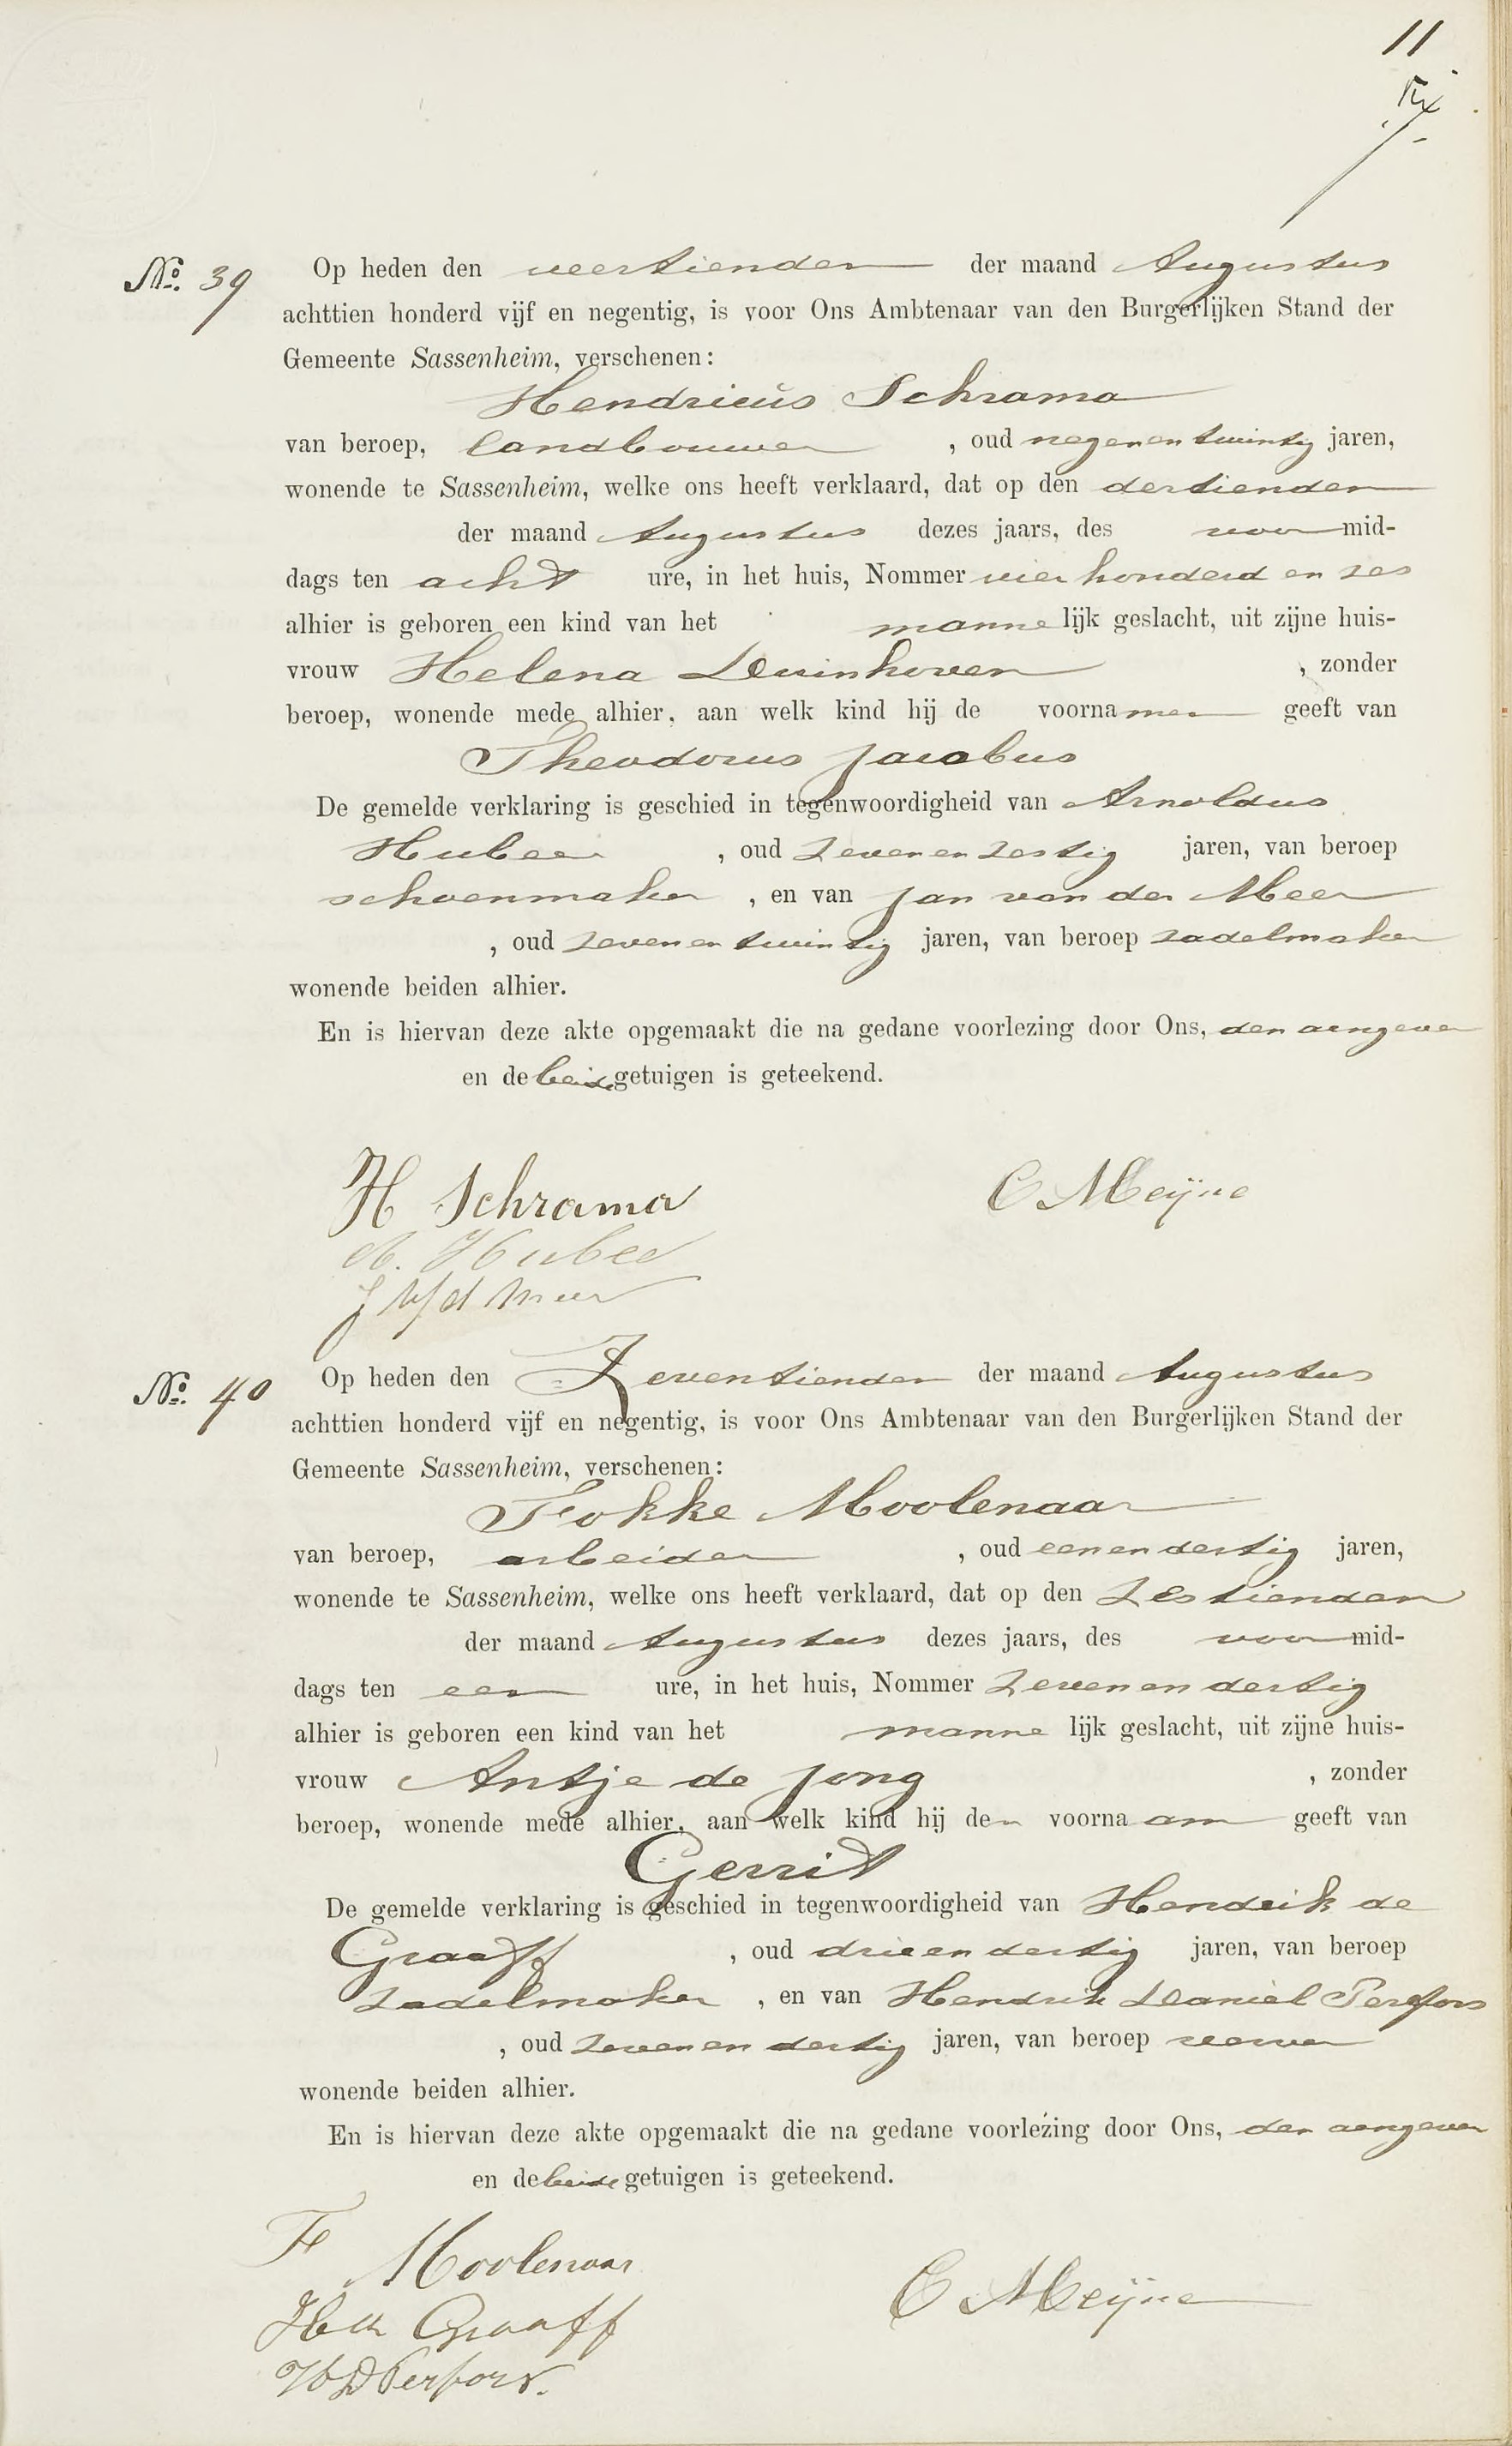 11
No. 39 Op heden den veertienden der maand Augustus
achttien honderd vijf en negentig, is voor Ons Ambtenaar van den Burgerlijken Stand der
Gemeente Sassenheim, verschenen:
Hendricus Schrama
van beroep, landbouwer , oud negenentwintig jaren,
wonende te Sassenheim, welke ons heeft verklaard, dat op den dertienden
der maand Augustus dezes jaars, des voormid-
dags ten acht ure, in het huis, Nommer vierhonderd en zes
alhier is geboren een kind van het mannelijk geslacht, uit zijne huis-
vrouw Helena Duinhoven , zonder
beroep, wonende mede alhier, aan welk kind hij de voornamen geeft van
Theodorus Jacobus
De gemelde verklaring is geschied in tegenwoordigheid van Arnoldus
Hubee , oud zevenenzestig jaren, van beroep
schoenmaker , en van Jan van der Meer
, oud zevenentwintig jaren, van beroep zadelmaker
wonende beiden alhier.
En is hiervan deze akte opgemaakt die na gedane voorlezing door Ons, den aangever
en de beide getuigen is geteekend.
H Schrama C Meijne
A. Hubee
J v/d Meer
No. 40 Op heden den Zeventienden der maand Augustus
achttien honderd vijf en negentig, is voor Ons Ambtenaar van den Burgerlijken Stand der
Gemeente Sassenheim, verschenen:
Fokke Moolenaar
van beroep, arbeider , oud eenendertig jaren,
wonende te Sassenheim, welke ons heeft verklaard, dat op den Zestienden
der maand Augustus dezes jaars, des voormid-
dags ten een ure, in het huis, Nommer Zevenendertig
alhier is geboren een kind van het mannelijk geslacht, uit zijne huis-
vrouw Antje de Jong , zonder
beroep, wonende mede alhier, aan welk kind hij den voornaam geeft van
Gerrit
De gemelde verklaring is geschied in tegenwoordigheid van Hendrik de
Graaff , oud drieendertig jaren, van beroep
zadelmaker , en van Hendrik Daniel Perfors
, oud zevenendertig jaren, van beroep verver
wonende beiden alhier.
En is hiervan deze akte opgemaakt die na gedane voorlezing door Ons, den aangever
en de beide getuigen is geteekend.
F Moolenaar
C Meijne
H de Graaff
HD Perfors.